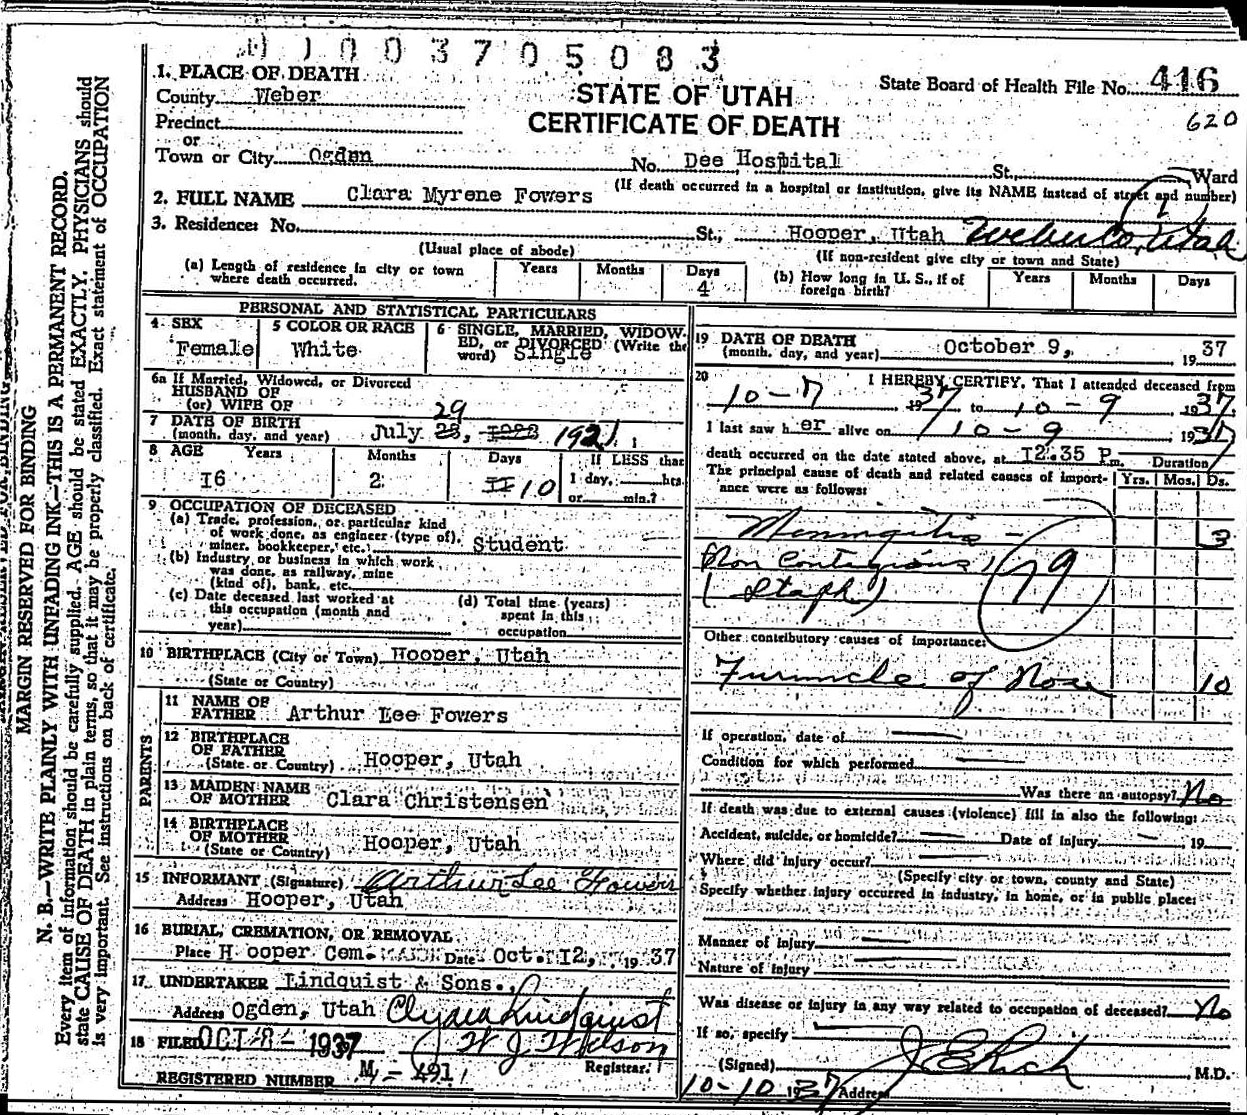 H 1 0 0 3 7 0 5 0 8 3
STATE OF UTAH
CERTIFICATE OF DEATH
State Board of Health File No. 416
620
1. PLACE OF DEATH
County Weber
Precinct
or
Town or City Ogden No. Dee Hospital St., Ward
(If death occurred in a hospital or institution, give its NAME instead of street and number)
2. FULL NAME Clara Myrene Fowers
3. Residence: No. St., Hooper, Utah Weber Co, Utah
(Usual place of abode) (If non-resident give city or town and State)
(a) Length of residence in city or town where death occurred. Years Months Days 4
(b) How long in U. S., if of foreign birth? Years Months Days
PERSONAL AND STATISTICAL PARTICULARS
4. SEX Female
5 COLOR OR RACE White
6 SINGLE, MARRIED, WIDOWED, or DIVORCED (Write the word) Single
6a If Married, Widowed, or Divorced
HUSBAND OF
(or) WIFE OF
7 DATE OF BIRTH
(month, day, and year) July 29, 1921
8 AGE Years Months Days If LESS than
16 2 II 10 1 day, hrs.
or min.?
9 OCCUPATION OF DECEASED
(a) Trade, profession, or particular kind
of work done, as engineer (type of),
miner, bookkeeper, etc. Student
(b) Industry or business in which work
was done, as railway, mine
(kind of), bank, etc.
(c) Date deceased last worked at
this occupation (month and
year)
(d) Total time (years)
spent in this
occupation
10 BIRTHPLACE (City or Town) Hooper, Utah
(State or Country)
PARENTS
11 NAME OF
FATHER Arthur Lee Fowers
12 BIRTHPLACE
OF FATHER
(State or Country) Hooper, Utah
13 MAIDEN NAME
OF MOTHER Clara Christensen
14 BIRTHPLACE
OF MOTHER
(State or Country) Hooper, Utah
15 INFORMANT (Signature) Arthur Lee Fowers
Address Hooper, Utah
16 BURIAL, CREMATION, OR REMOVAL
Place H ooper Cem. Date Oct. I2, 1937
17 UNDERTAKER Lindquist & Sons.,
Address Ogden, Utah Clyde Lindquist
18 FILED OCT 1937 W J Wilson
Registrar.
REGISTERED NUMBER M-491
19 DATE OF DEATH
(month, day, and year) October 9, 1937
20 I HEREBY CERTIFY, That I attended deceased from
10-7 1937 to 10-9 1937
I last saw her alive on 10-9 1937
death occurred on the date stated above, at I2.35 P m. Duration
The principal cause of death and related causes of importance were as follows: Yrs. Mos. Ds.
Meningitis - 3
(Non Contagious)
(Staph) 79
Other contributory causes of importance:
Furuncle of Nose 10
If operation, date of
Condition for which performed
Was there an autopsy? No
If death was due to external causes (violence) fill in also the following:
Accident, suicide, or homicide? Date of injury 19
Where did injury occur?
(Specify city or town, county and State)
Specify whether injury occurred in industry, in home, or in public place:
Manner of injury
Nature of injury
Was disease or injury in any way related to occupation of deceased? No
If so, specify
(Signed) J E Rich M.D.
10-10 1937 Address
MARGIN RESERVED FOR BINDING
N. B.—WRITE PLAINLY WITH UNFADING INK—THIS IS A PERMANENT RECORD.
Every item of information should be carefully supplied. AGE should be stated EXACTLY. PHYSICIANS should
state CAUSE OF DEATH in plain terms, so that it may be properly classified. Exact statement of OCCUPATION
is very important. See instructions on back of certificate.